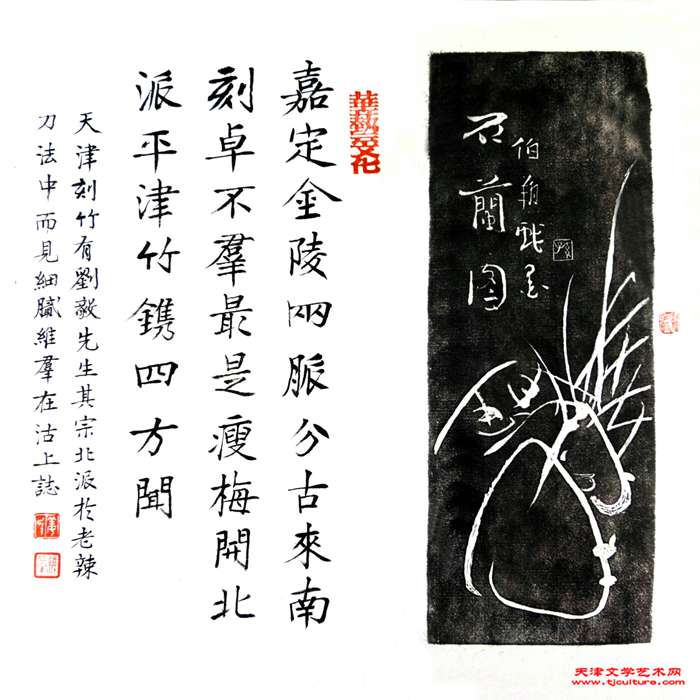 石蘭图
伯舟戏墨
華藝文化
嘉定金陵兩脈分古來南
刻卓不羣最是瘦梅開北
派平津竹鐫四方聞
天津刻竹有劉毅先生其宗北派於老辣
刀法中而見細膩維羣在沽上誌
天津文学艺术网
www.tjculture.com